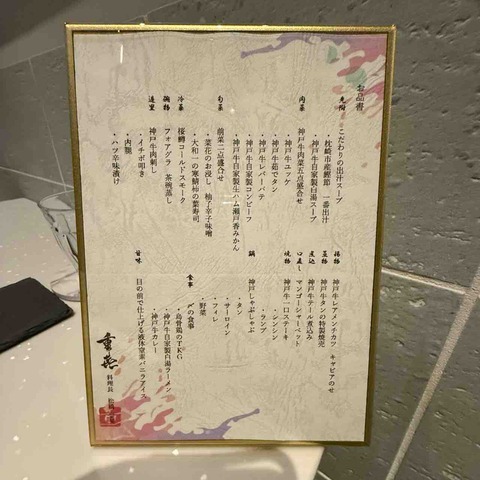 お品書
先附
こだわりの出汁スープ
・枕崎市産鰹節 一番出汁
・神戸牛自家製白湯スープ
肉菜
神戸牛肉菜五点盛合せ
・神戸牛ユッケ
・神戸牛茹でタン
・神戸牛レバーパテ
・神戸牛自家製コンビーフ
・神戸牛自家製生ハム瀬戸香みかん
旬菜
前菜二点盛合せ
・菜花のお浸し 柚子辛子味噌
・大和一の寒鯖柿の葉寿司
冷菜
桜鱒コールドスモーク
椀物
フォアグラ 茶碗蒸し
造里
神戸牛肉刺し
・イチボ叩き
・内腿
・ハツ辛味漬け
揚物
神戸牛レアメンチカツ キャビアのせ
蒸物
神戸牛タンの特製焼売
煮込
神戸牛テール煮込み
口直し
マンゴーシャーベット
焼物
神戸牛一口ステーキ
・シンシン
・ランプ
鍋
神戸しゃぶしゃぶ
・タン
・サーロイン
・フィレ
・野菜
食事
〆の食事
・烏骨鶏のTKG
・神戸牛自家製白湯ラーメン
・神戸牛カレー
甘味
目の前で仕上げる液体窒素バニラアイス
料理長